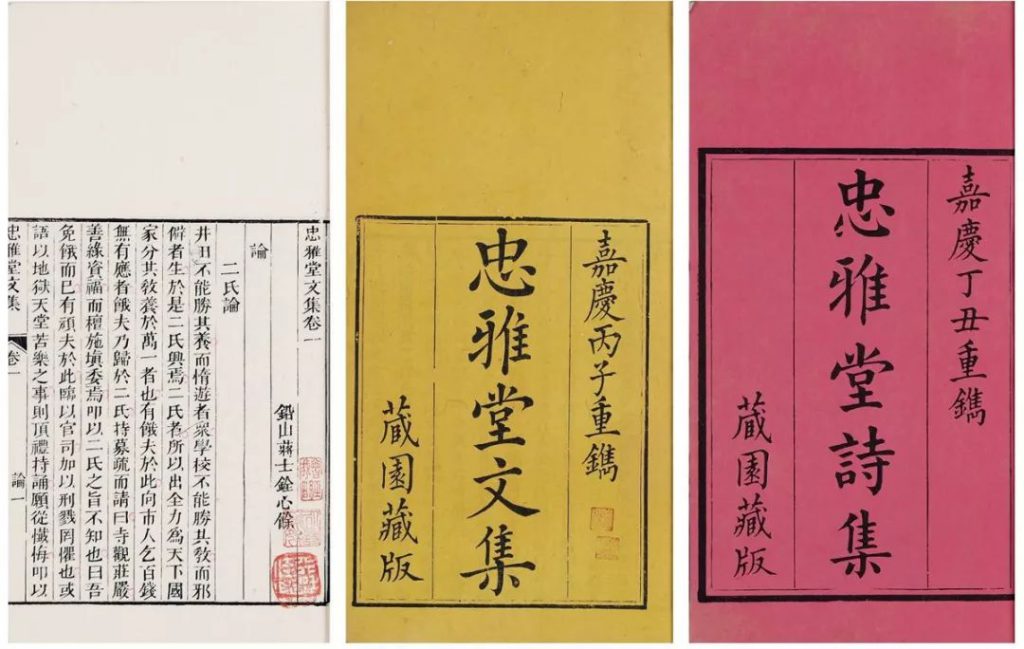 忠雅堂文集卷一
鉛山蔣士銓心餘
論
二氏論
井田不能勝其養而惰遊者衆學校不能勝其敎而邪
僻者生於是二氏興焉二氏者所以出全力爲天下國
家分其敎養於萬一者也有餓夫於此向市人乞百錢
無有應者餓夫乃歸於二氏持募疏而請曰寺觀莊嚴
善緣資福而檀施塡委焉叩以二氏之旨不知也曰吾
免餓而已有頑夫於此臨以官司加以刑戮罔懼也或
語以地獄天堂苦樂之事則頂禮持誦願從懺悔叩以
忠雅堂文集 卷一 論一
嘉慶丙子重鐫
忠雅堂文集
蔵園藏版
嘉慶丁丑重鐫
忠雅堂詩集
蔵園藏版